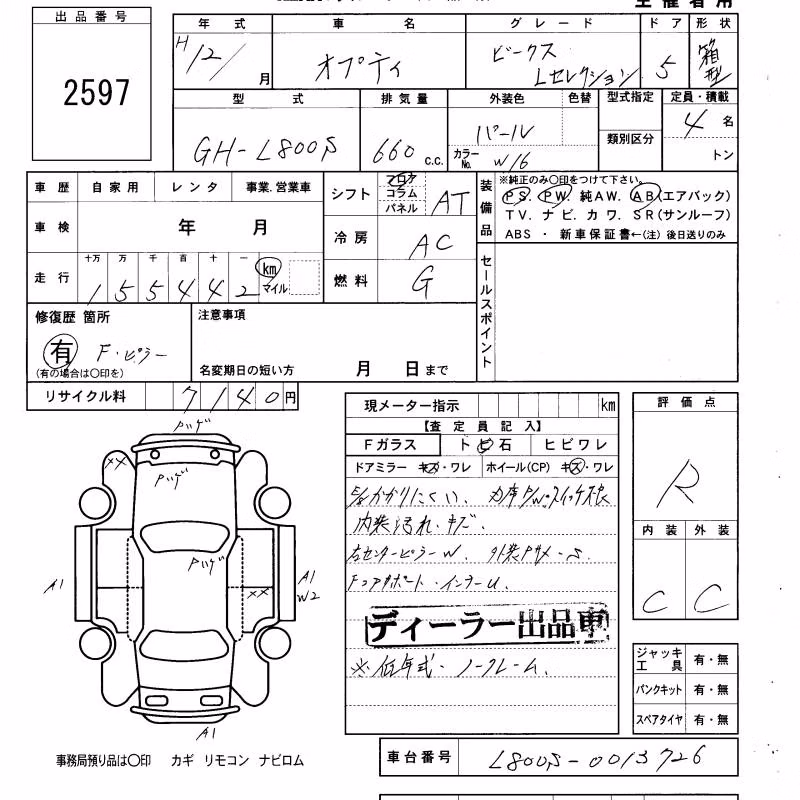 出品番号
2597
年式 車名 グレード ドア 形状
H12/ 月 オプティ ビークス Lセレクション 5 箱型
型式 排気量 外装色 色替 型式指定 定員・積載
GH-L800S 660 c.c. パール 類別区分 4 名
カラーNo. W16 トン
車歴 自家用 レンタ 事業.営業車
車検 年 月
走行 十万 万 千 百 十 一
155442 km マイル
シフト フロア コラム パネル AT
冷房 AC
燃料 G
装備品
※純正のみ〇印をつけて下さい。
PS. PW. 純AW. AB(エアバック)
TV. ナビ. カワ. SR(サンルーフ)
ABS ・ 新車保証書←(注) 後日送りのみ
セールスポイント
修復歴 箇所
有 F・ピラー
(有の場合は〇印を)
注意事項
名変期日の短い方 月 日まで
リサイクル料 7140 円
現メーター指示 km
【査定員記入】
Fガラス トビ石 ヒビワレ
ドアミラー キズ・ワレ ホイール(CP) キズ・ワレ
E/gかかりにくい、
内装汚れ・キズ.
右センターピラーW.
Fコアサポート・インナーU.
ディーラー出品車
※低年式・ノークレーム.
評価点
R
内装 外装
C C
ジャッキ工具 有・無
パンクキット 有・無
スペアタイヤ 有・無
車台番号 L800S-0013726
XX
A1
XX
A1
W2
A1
事務局預り品は〇印 カギ リモコン ナビロム